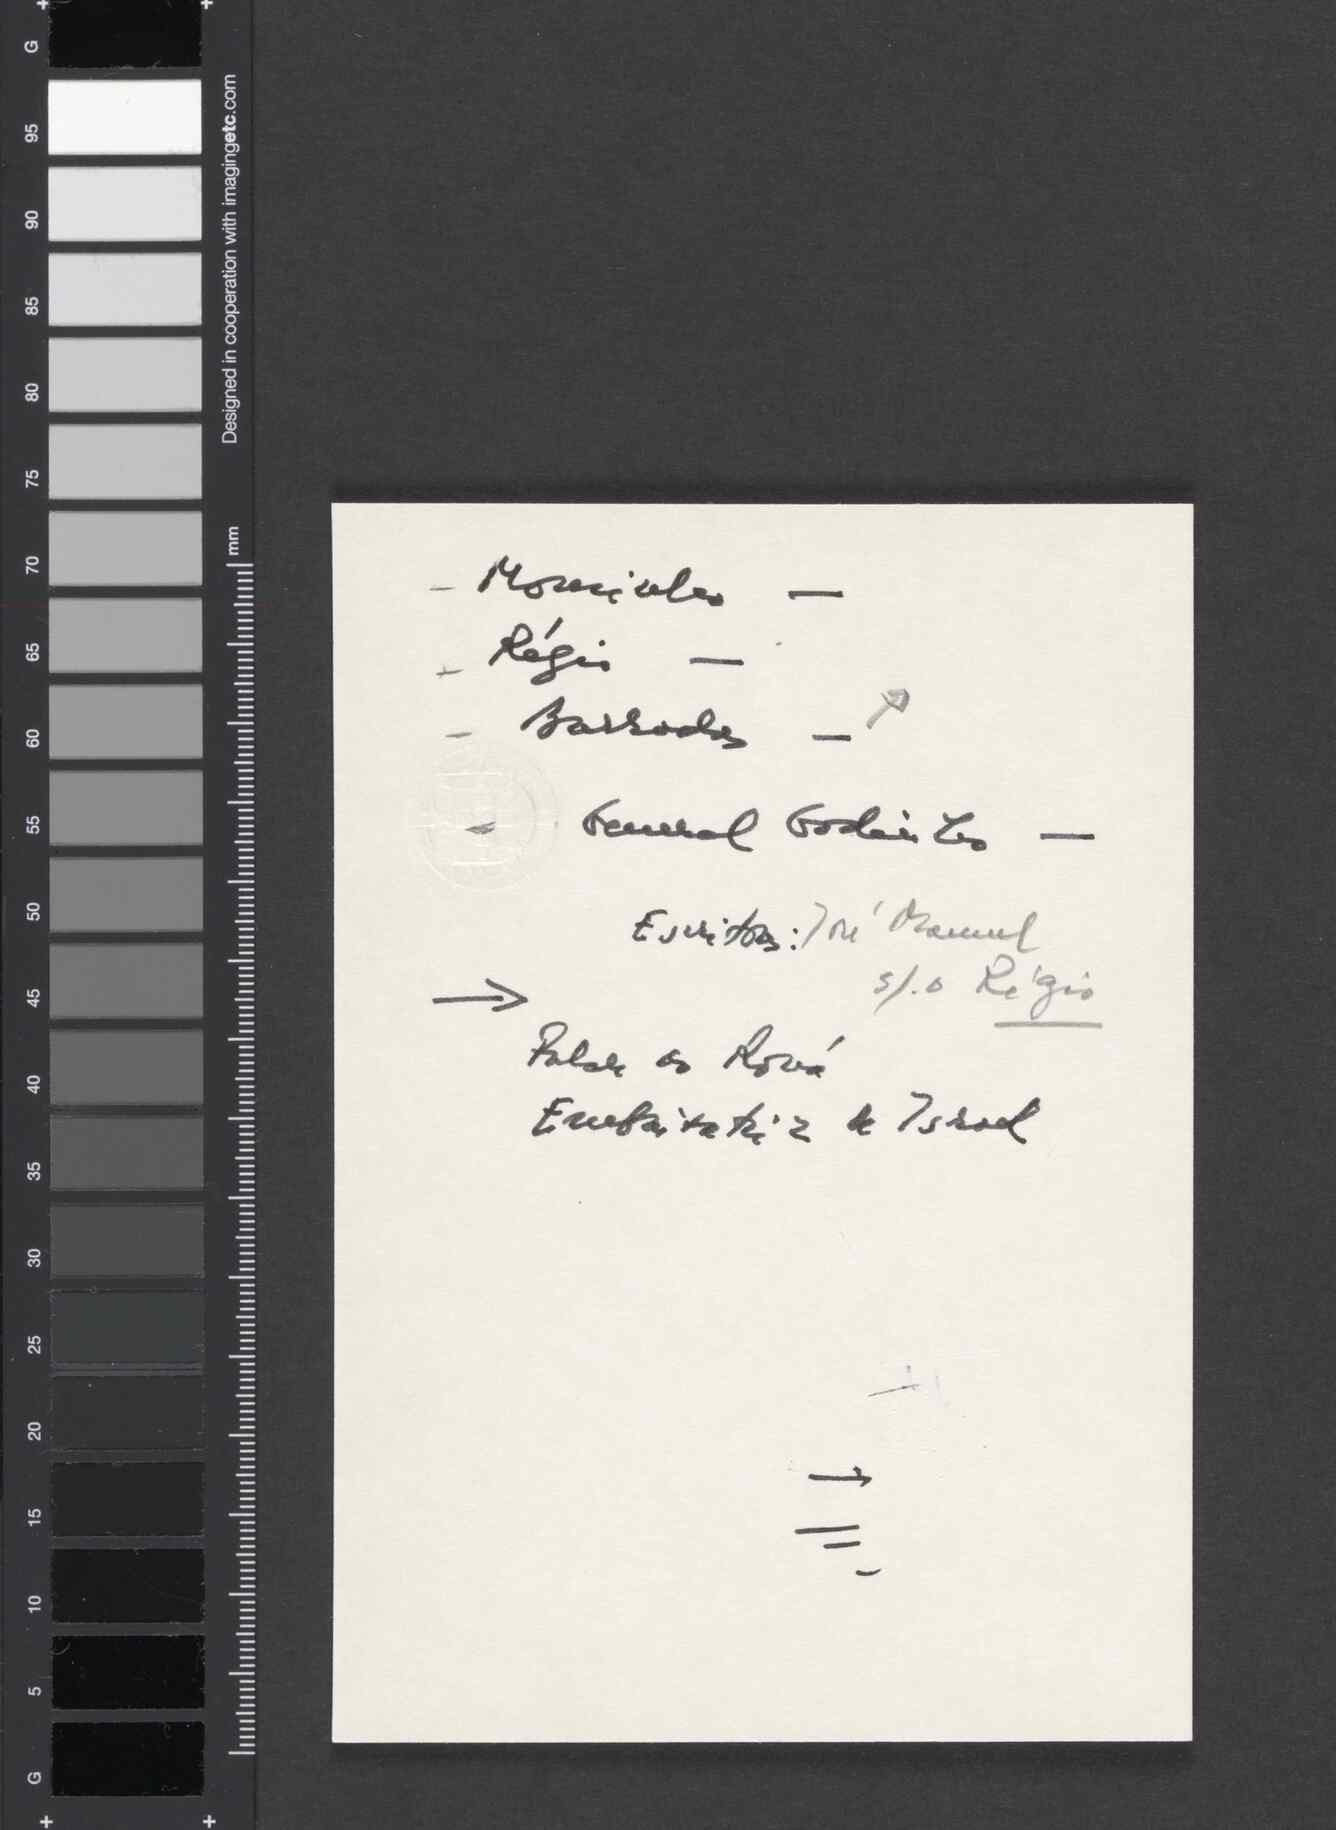 G
95
90
85
80
75
70
65
60
55
50
45
40
35
30
25
20
15
10
5
G
Designed in cooperation with imagingetc.com
mm
- Régio -
General Godinho -
Escritor: José Manuel
s/. o Régio
Embaixatriz de Israel